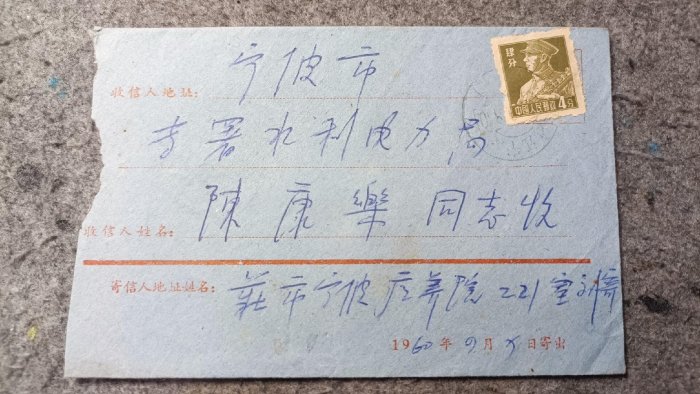 肆分
中国人民邮政 4分
宁波市
收信人地址：
专署水利电力局
陳康樂同志收
收信人姓名：
寄信人地址姓名： 莊市宁波疗养院221室
1960年9月 日寄出